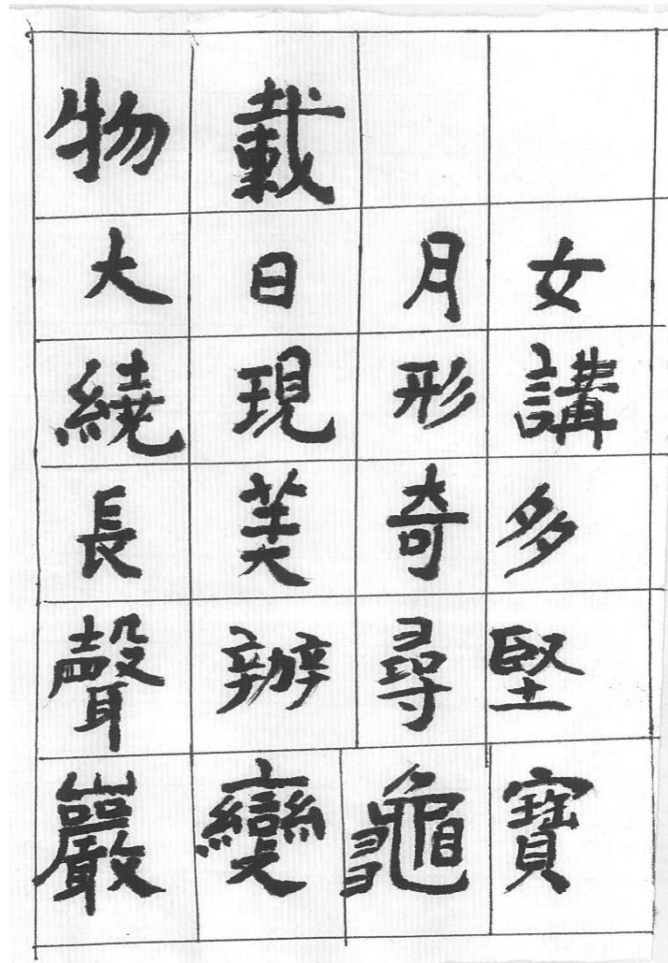 物載
大日月女
繞現形講
長美奇多
聲辦尋堅
巖變龜寶